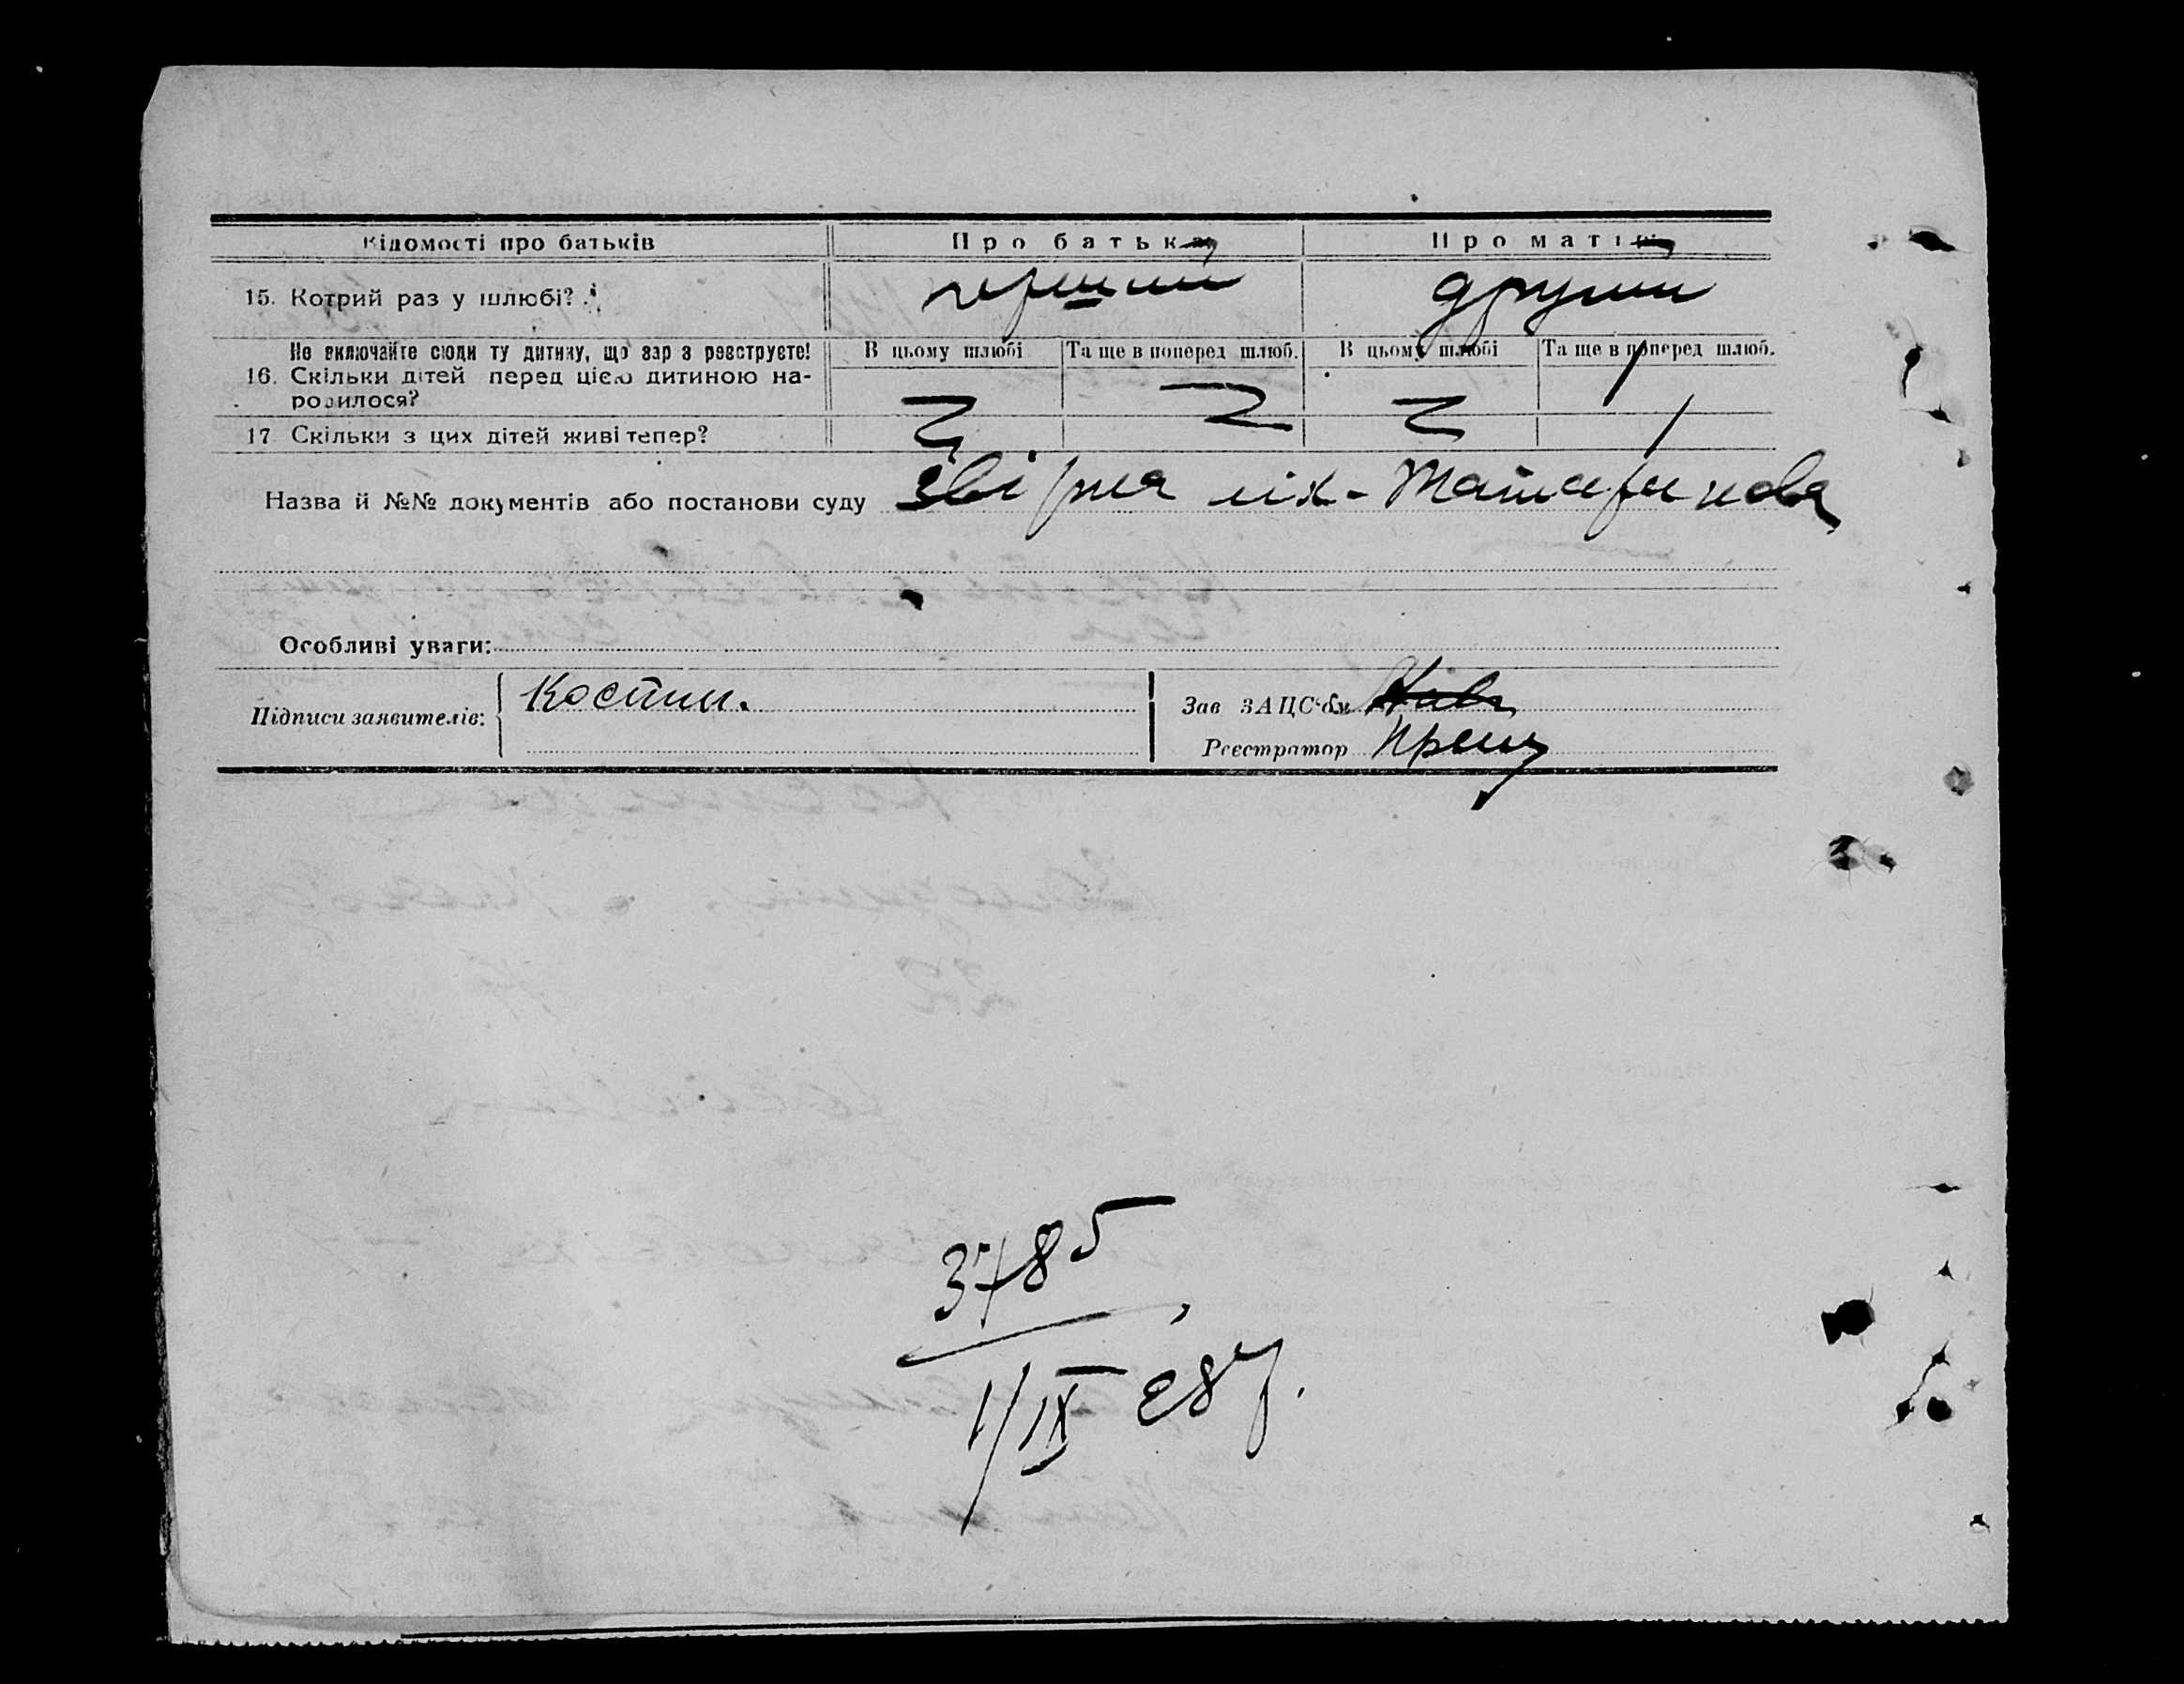 Відомості про батьків
Про батька
Про матір
15. Котрий раз у шлюбі?
перший
други
Не включайте сюди ту дитину, що зараз реєструєте!
В цьому шлюбі
Та ще в поперед шлюб.
В цьому шлюбі
Та ще в поперед шлюб.
16. Скільки дітей перед цією дитиною на-
родилося?
1
17 Скільки з цих дітей живі тепер?
1
Назва й №№ документів або постанови суду
Особливі уваги:
Підписи заявителів:
Костин.
Зав ЗАЦС'ом
Реєстратор
3785
1/IX 28 р.